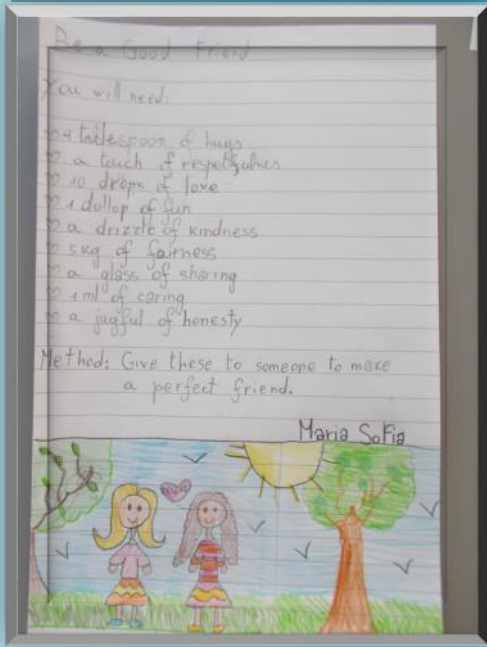 Be a Good Friend
You will need:
♡ 1 tablespoon of hugs
♡ a touch of respetfulnes
♡ 10 drops of love
♡ 1 dollop of fun
♡ a drizzle of kindness
♡ 5 kg of fairness
♡ a glass of sharing
♡ 1 ml of caring
♡ a jugful of honesty
Method: Give these to someone to make
a perfect friend.
Maria Sofia